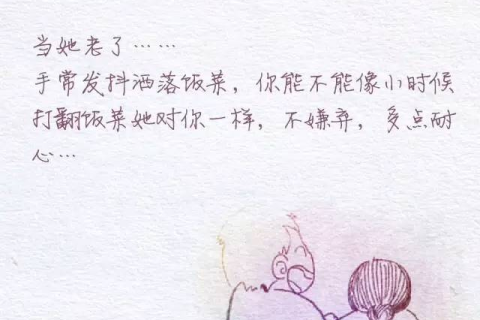 当她老了……
手常发抖洒落饭菜，你能不能像小时候
打翻饭菜她对你一样，不嫌弃，多点耐
心…